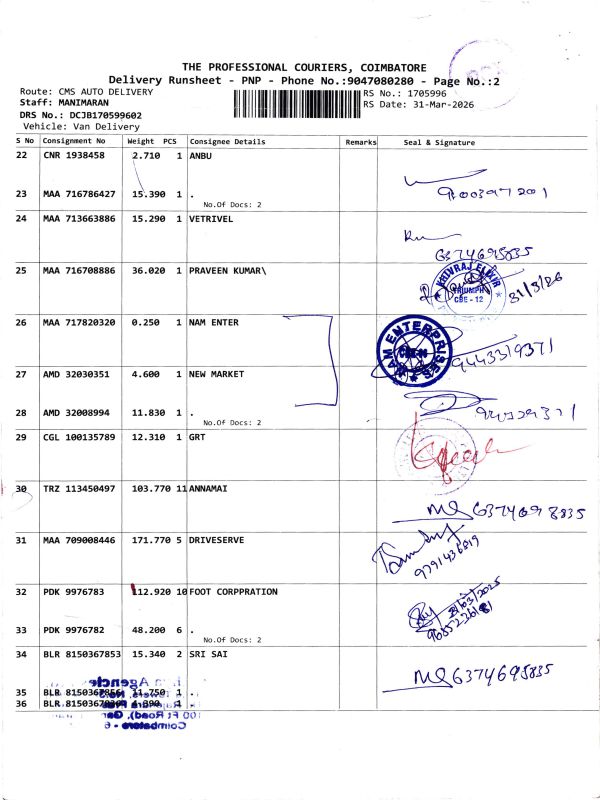 THE PROFESSIONAL COURIERS, COIMBATORE
Delivery Runsheet - PNP - Phone No.:9047080280 - Page No.:2
Route: CMS AUTO DELIVERY
RS No.: 1705996
Staff: MANIMARAN
RS Date: 31-Mar-2026
DRS No.: DCJB170599602
Vehicle: Van Delivery
S No Consignment No Weight PCS Consignee Details Remarks Seal & Signature
22 CNR 1938458 2.710 1 ANBU
23 MAA 716786427 15.390 1 .
No.Of Docs: 2
24 MAA 713663886 15.290 1 VETRIVEL
6374695835
25 MAA 716708886 36.020 1 PRAVEEN KUMAR\
KHIVRAJ ELIXIR
TRIUMPH
CBE - 12
31/3/26
26 MAA 717820320 0.250 1 NAM ENTER
NAM ENTERPRISES
9443319371
27 AMD 32030351 4.600 1 NEW MARKET
28 AMD 32008994 11.830 1 .
No.Of Docs: 2
29 CGL 100135789 12.310 1 GRT
30 TRZ 113450497 103.770 11 ANNAMAI
31 MAA 709008446 171.770 5 DRIVESERVE
9791436819
32 PDK 9976783 112.920 10 FOOT CORPPRATION
33 PDK 9976782 48.200 6 .
No.Of Docs: 2
34 BLR 8150367853 15.340 2 SRI SAI
6374695835
35 BLR 11.750 1 .
36 BLR 1 .
100 Ft Road),
Coimbatore - 6